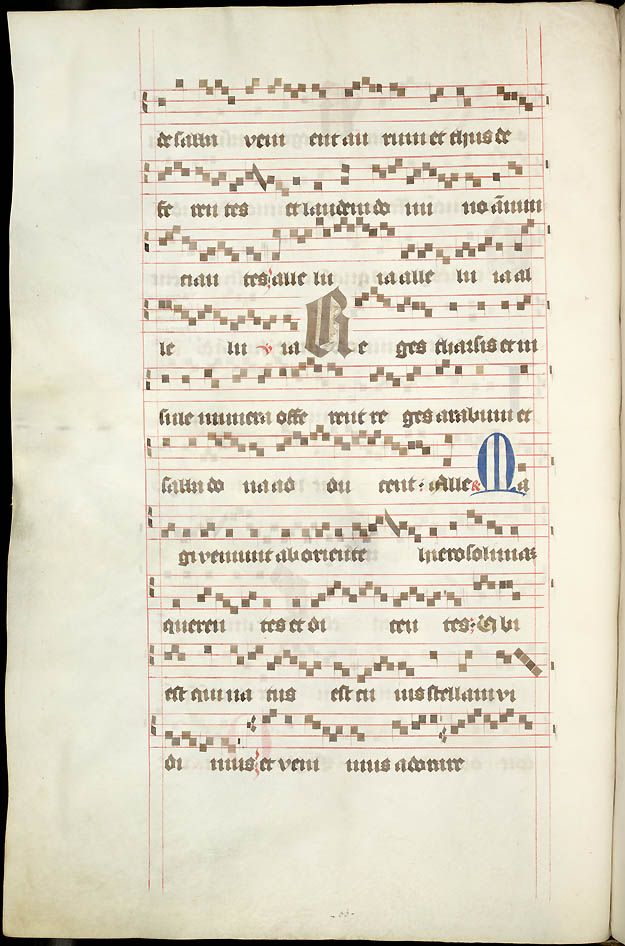 de sabba veni ent au rum et thus de
fe ren tes et laudem do mi no an̄nun
cian tes alle lu ia alle lu ia al
le lu ℣ ia Re ges tharsis et in
sule munera offe rent re ges arabum et
saba do na ad du cent. Alle Ma
gi veniunt ab oriente hierosolimaz
queren tes et di cen tes: Ubi
est qui na tus est cu ius stellam vi
di mus et veni mus adorare